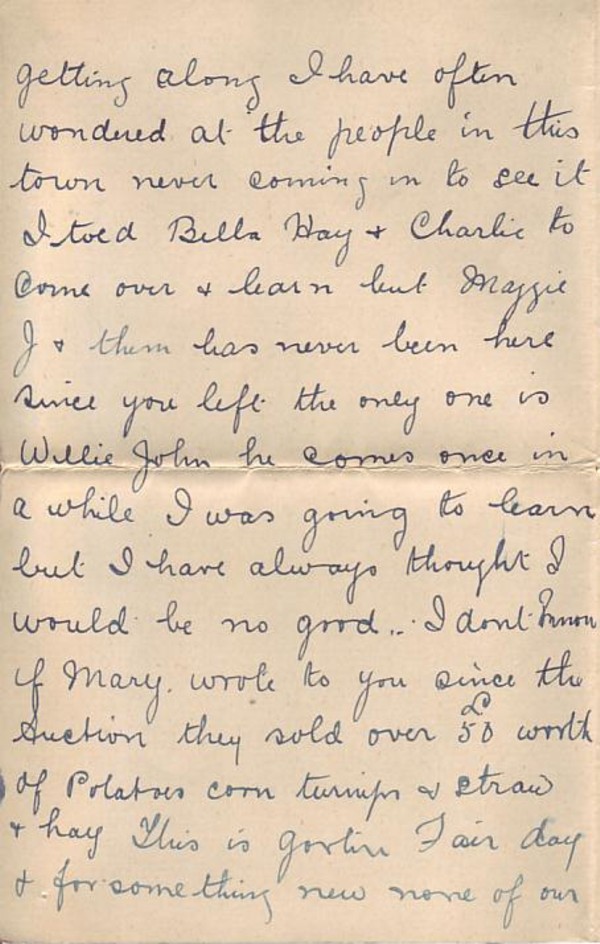 getting along I have often
wondered at the people in this
town never coming in to see it
I toed Bella Hay + Charlie to
come over & learn but Maggie
J & them has never been here
since you left the only one is
Willie John he comes once in
a while I was going to learn
but I have always thought I
would be no good... I dont know
if Mary. wrote to you since the
Auction they sold over £50 worth
of Potatoes corn turnips & straw
+ hay This is Gortin Fair day
+ for something new none of our